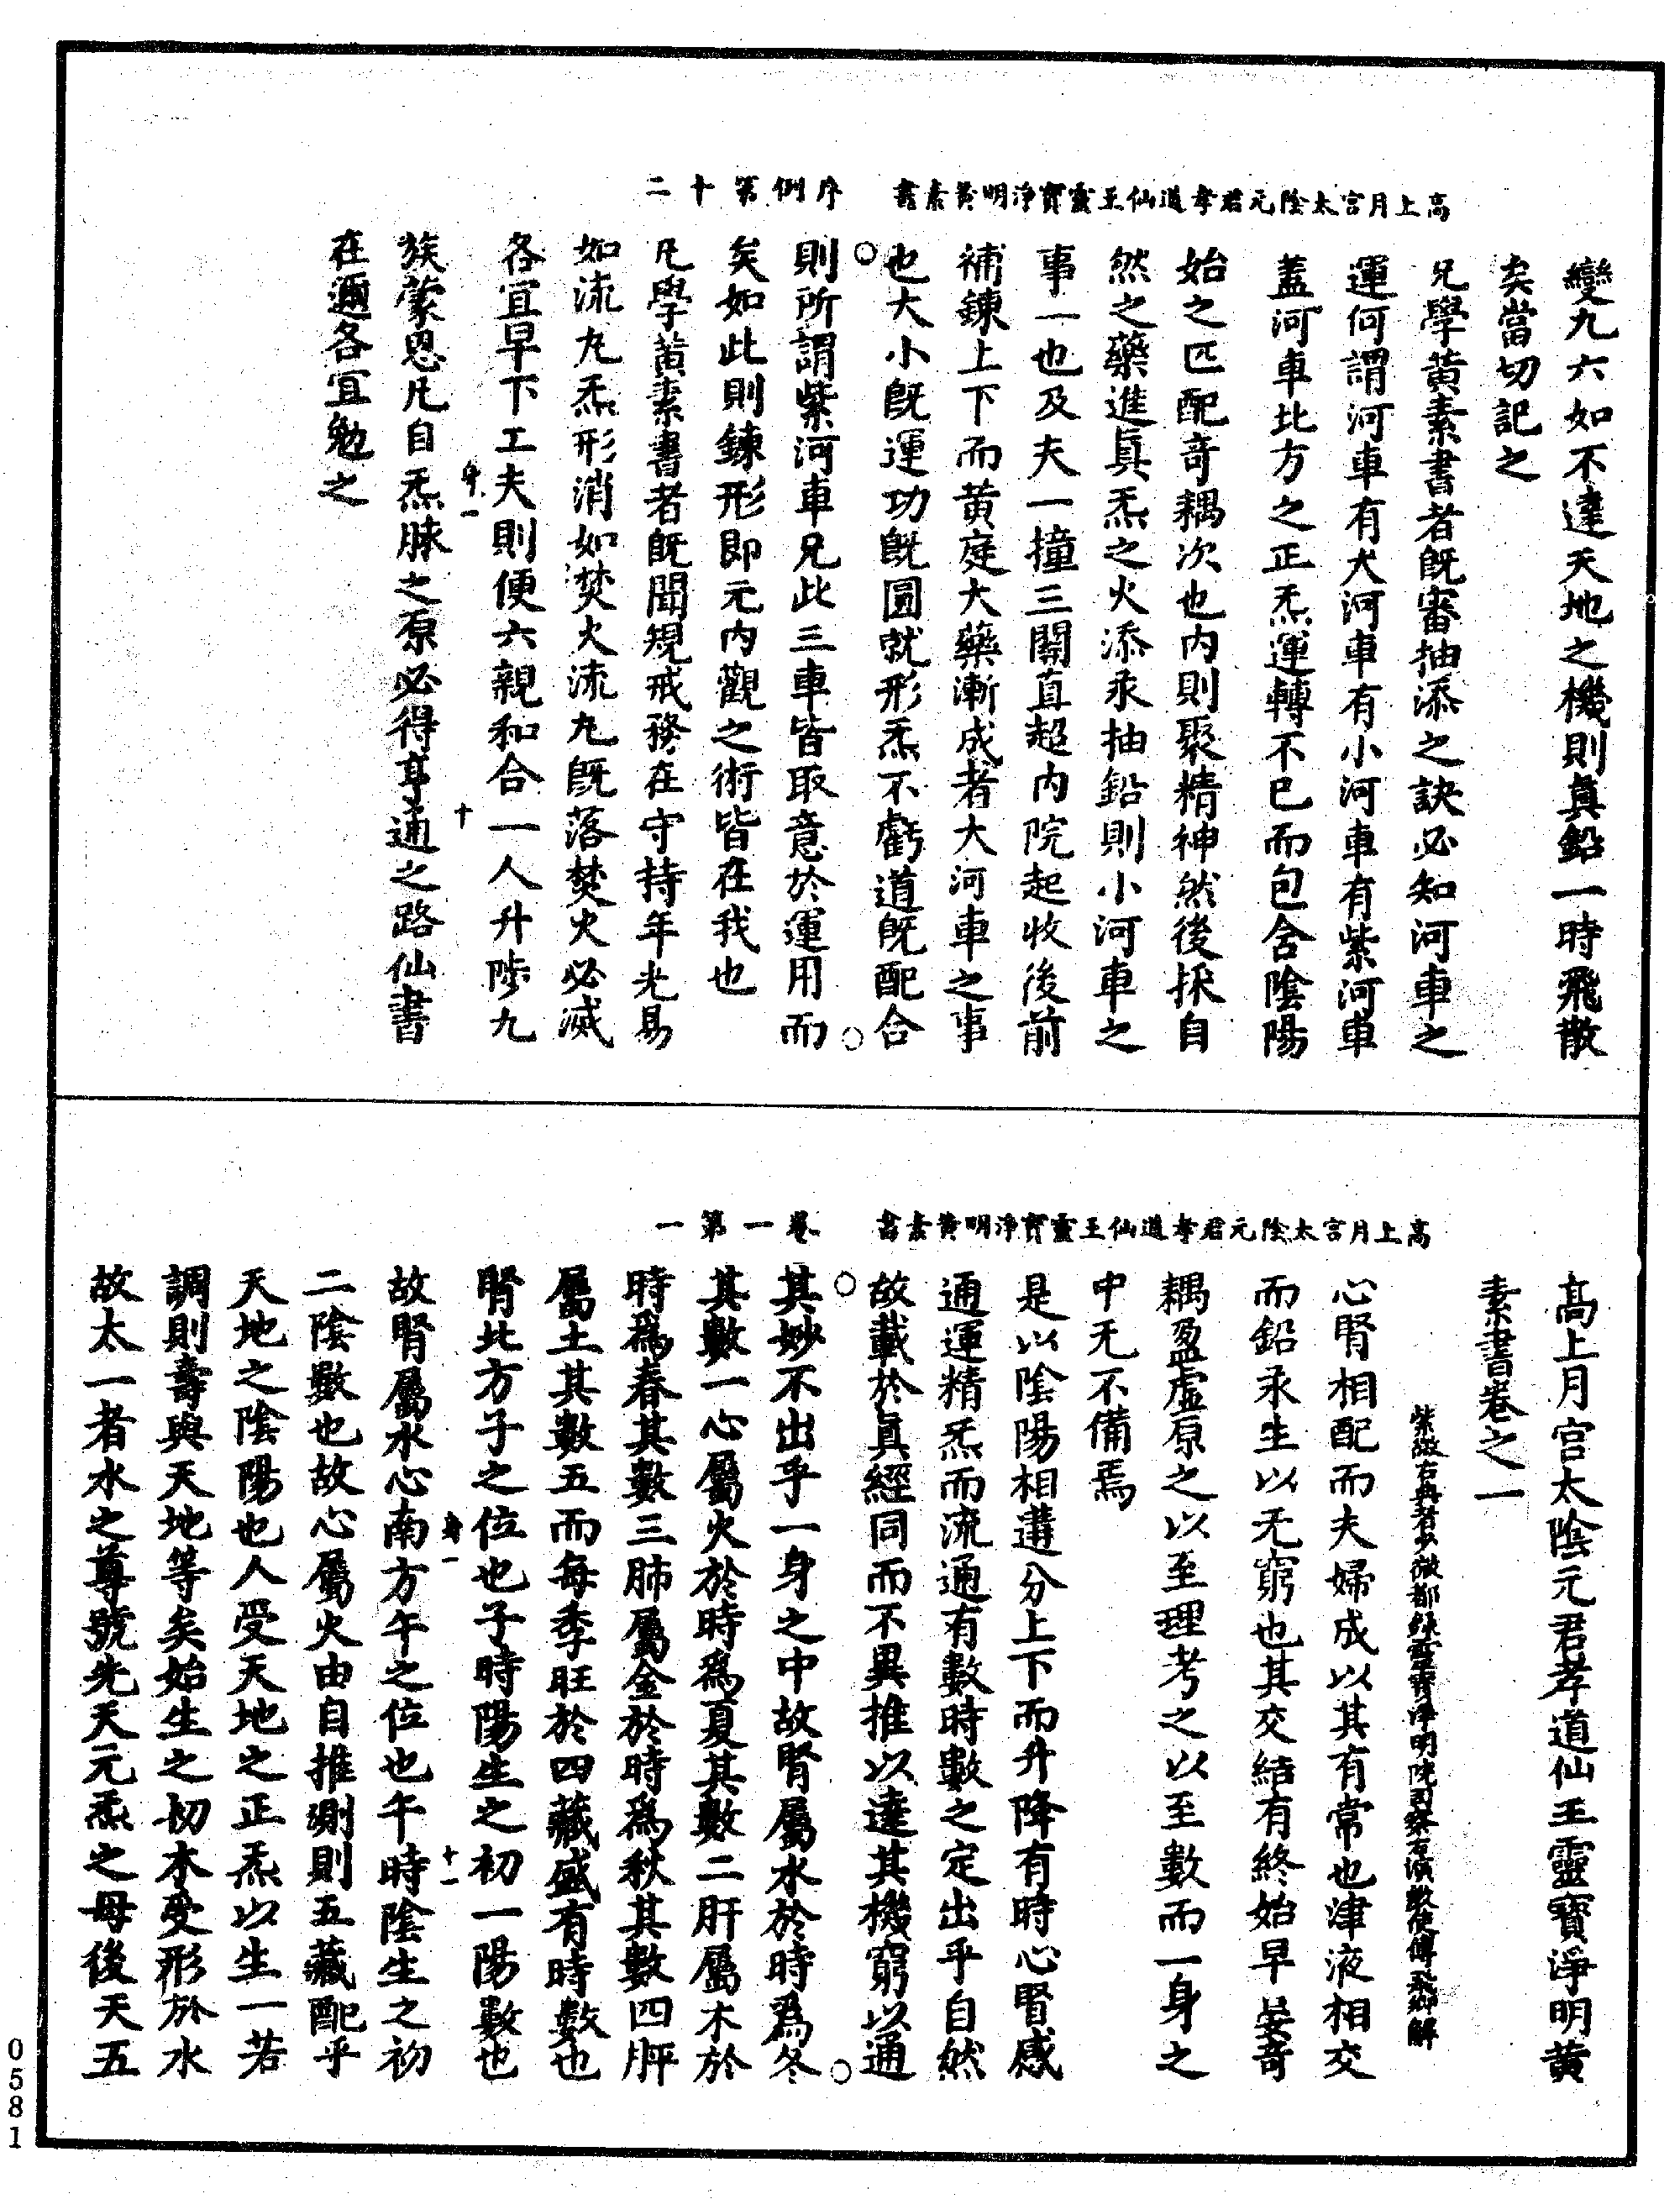 高上月宫太陰元君孝道仙王靈寶淨明黄素書　序例第十二
變九六如不達天地之機則真鉛一時飛散
矣當切記之
凡學黄素書者既審抽添之訣必知河車之
運何謂河車有大河車有小河車有紫河車
蓋河車北方之正炁運轉不已而包含陰陽
始之匹配奇耦次也内則聚精神然後採自
然之藥進真炁之火添汞抽鉛則小河車之
事一也及夫一撞三關直超内院起收後前
補鍊上下而黄庭大藥漸成者大河車之事
也大小既運功既圓就形炁不虧道既配合
則所謂紫河車凡此三車皆取意於運用而
矣如此則鍊形即元内觀之術皆在我也
凡學黄素書者既聞規戒務在守持年光易
如流丸炁形消如焚火流丸既落焚火必滅
各宜早下工夫則便六親和合一人升陟九
身一　十
族蒙恩凡自炁脉之原必得亨通之路仙書
在邇各宜勉之
高上月宫太陰元君孝道仙王靈寶淨明黄素書　卷一第一
高上月宫太陰元君孝道仙王靈寶淨明黄
素書卷之一
心腎相配而夫婦成以其有常也津液相交
而鉛汞生以无窮也其交結有終始早晏奇
耦盈虚原之以至理考之以至數而一身之
中无不備焉
是以陰陽相遘分上下而升降有時心腎感
通運精炁而流通有數時數之定出乎自然
故載於真經同而不異推以達其機窮以通
其妙不出乎一身之中故腎屬水於時爲冬
其數一心屬火於時爲夏其數二肝屬木於
時爲春其數三肺屬金於時爲秋其數四脾
屬土其數五而每季旺於四藏盛有時數也
腎北方子之位也子時陽生之初一陽數也
身一　十一
故腎屬水心南方午之位也午時陰生之初
二陰數也故心屬火由自推測則五藏配乎
天地之陰陽也人受天地之正炁以生一若
調則壽與天地等矣始生之初本受形於水
故太一者水之尊號先天元炁之母後天五
0581